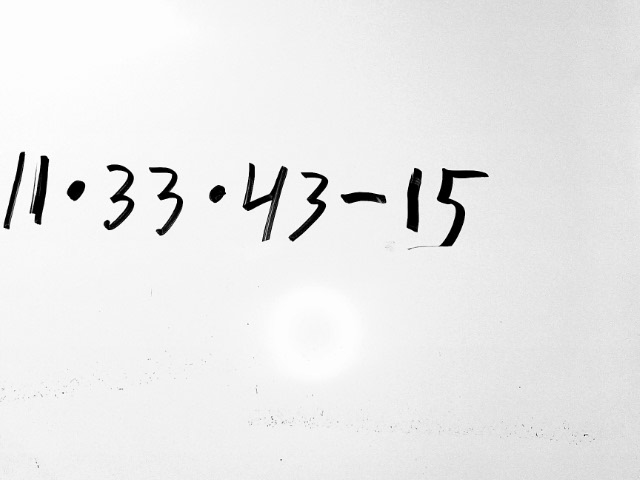 11·33·43-15